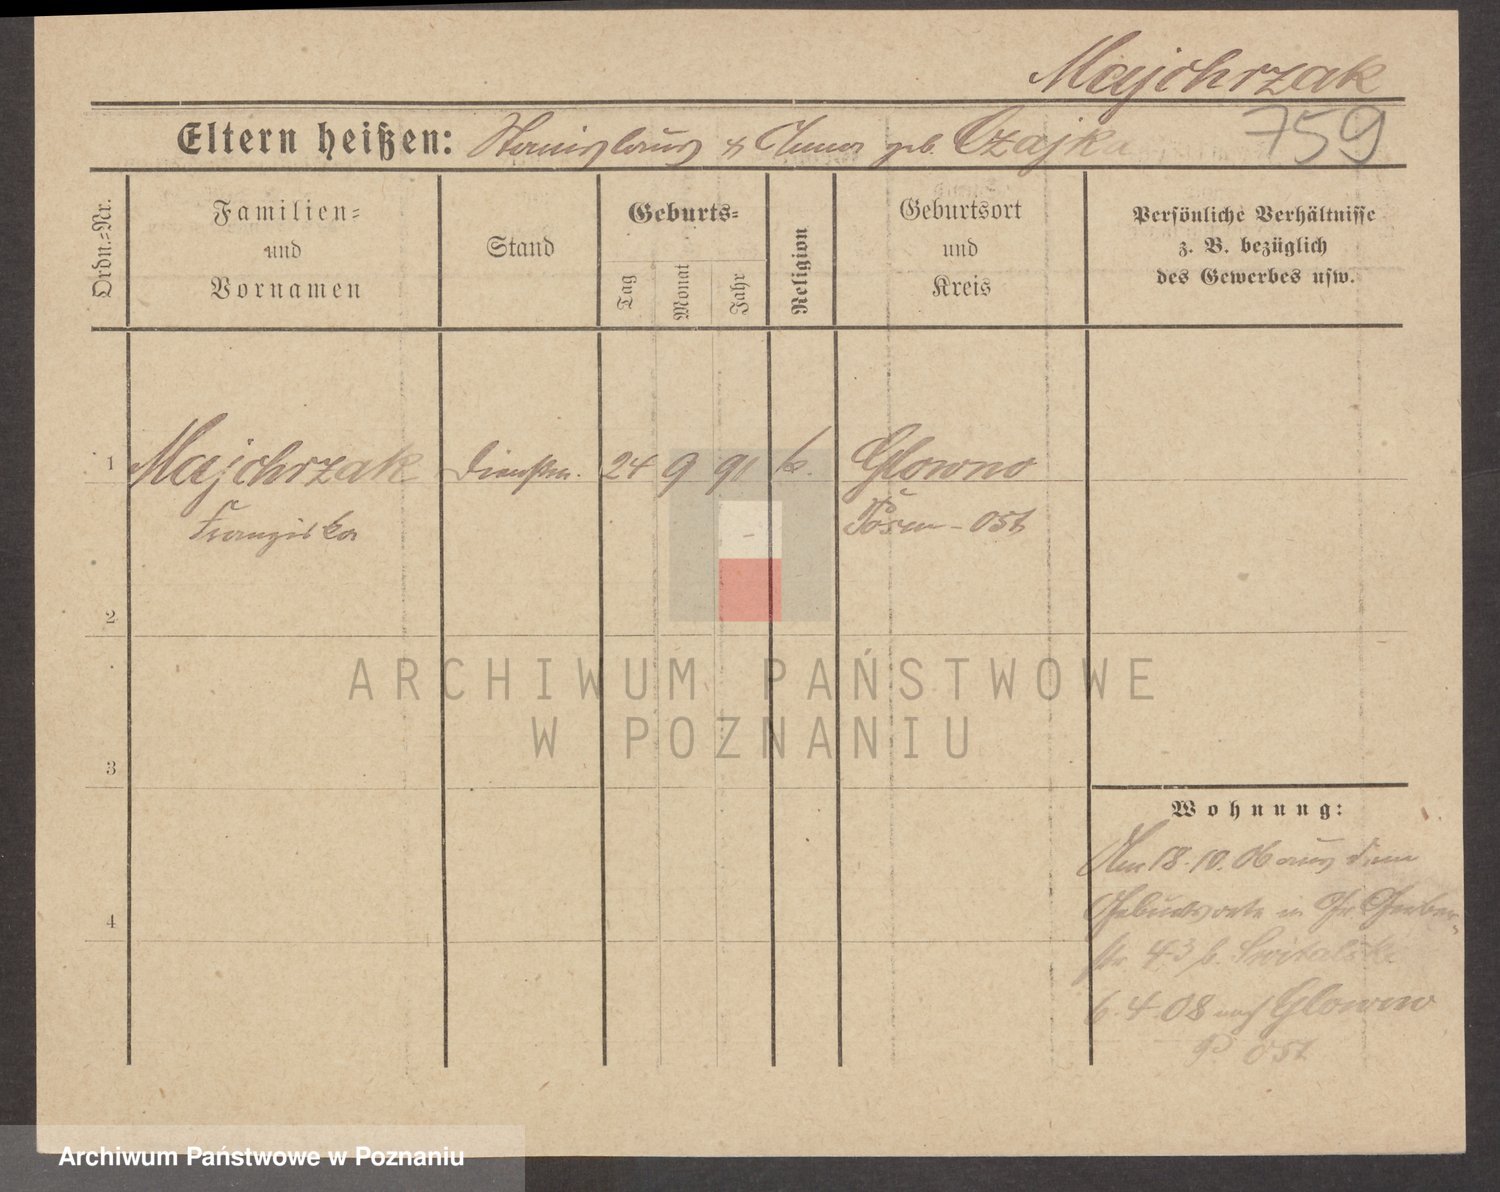 Majchrzak
Eltern heißen: Stanislaus & Anna geb. Czajka 759
Ordn.=Nr.
Familien=
und
Vornamen
Stand
Geburts=
Tag
Monat
Jahr
Religion
Geburtsort
und
Kreis
Persönliche Verhältnisse
z. B. bezüglich
des Gewerbes usw.
1 Majchrzak Dienstm. 24 9 91 k. Glowno
Franziska Posen-Ost
2
ARCHIWUM PAŃSTWOWE
W POZNANIU
3
Wohnung:
Am 18.10.06 aus dem
Geburtsorte n Gr. Gerber-
str 43 b. Switalski
4
6.4.08 nach Glowno
Ost
Archiwum Państwowe w Poznaniu